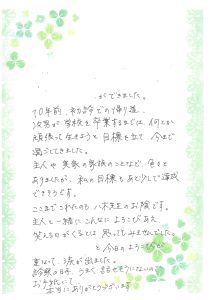 ができました。
10年前、初診での帰り道、
次男が学校を卒業するまでは、何とか
頑張って生きようと目標を立て、今まで
過ごしてきました。
主人や実家の家族のことなど、色々と
ありましたが、私の目標もあと少しで達成
できそうです。
ここまでこれたのも八木先生のお陰です。
主人と一緒にこんなによろこびあえ、
笑える日がくるとは思ってもみませんでした。
と今日のよろこびが
重なって、涙が出ました。
診察の日は、うまく話せそうにないので
お手紙にて
本当にありがとうございます